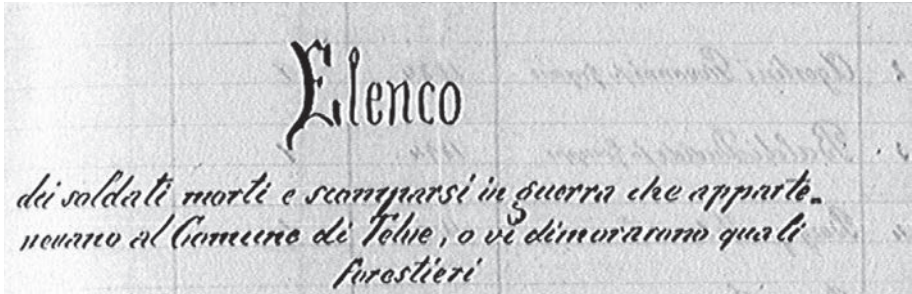 Elenco
dei soldati morti e scomparsi in guerra che apparte-
nevano al Comune di Telve, o vi dimorarono quali
forestieri